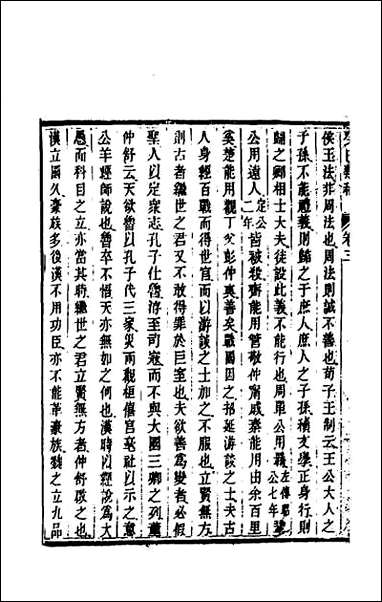 侯王法非周法也周法則誠不善也荀子王制云王公大人之
子孫不能禮義則歸之于庶人庶人之子孫積文學正身行則
歸之卿相士大夫徒設此義不能行也周單公用羈左傳昭公七年鞏
公用遠人定公二年皆被殺齊能用管敬仲甯戚秦能用由余百里
奚楚能用觀丁父彭仲爽善矣戰國因之招延游談之士夫古
人身經百戰而得世官而以游談之士加之不服也立賢無方
則古者繼世之君又不敢得罪於巨室也夫欲善為變者必假
聖人以定衆志孔子仕魯游至司寇而不與大國三卿之列董
仲舒云天欲魯以孔子代三家災兩觀桓僖宮亳社以示之意
公羊經師說也魯卒不悟天亦無如之何也漢時以經說為大
愚而科目之立亦當其時繼世之君立賢無方者仲舒啟之也
漢立國久豪族多後漢不用功臣亦不能革豪族魏之立九品
卷三